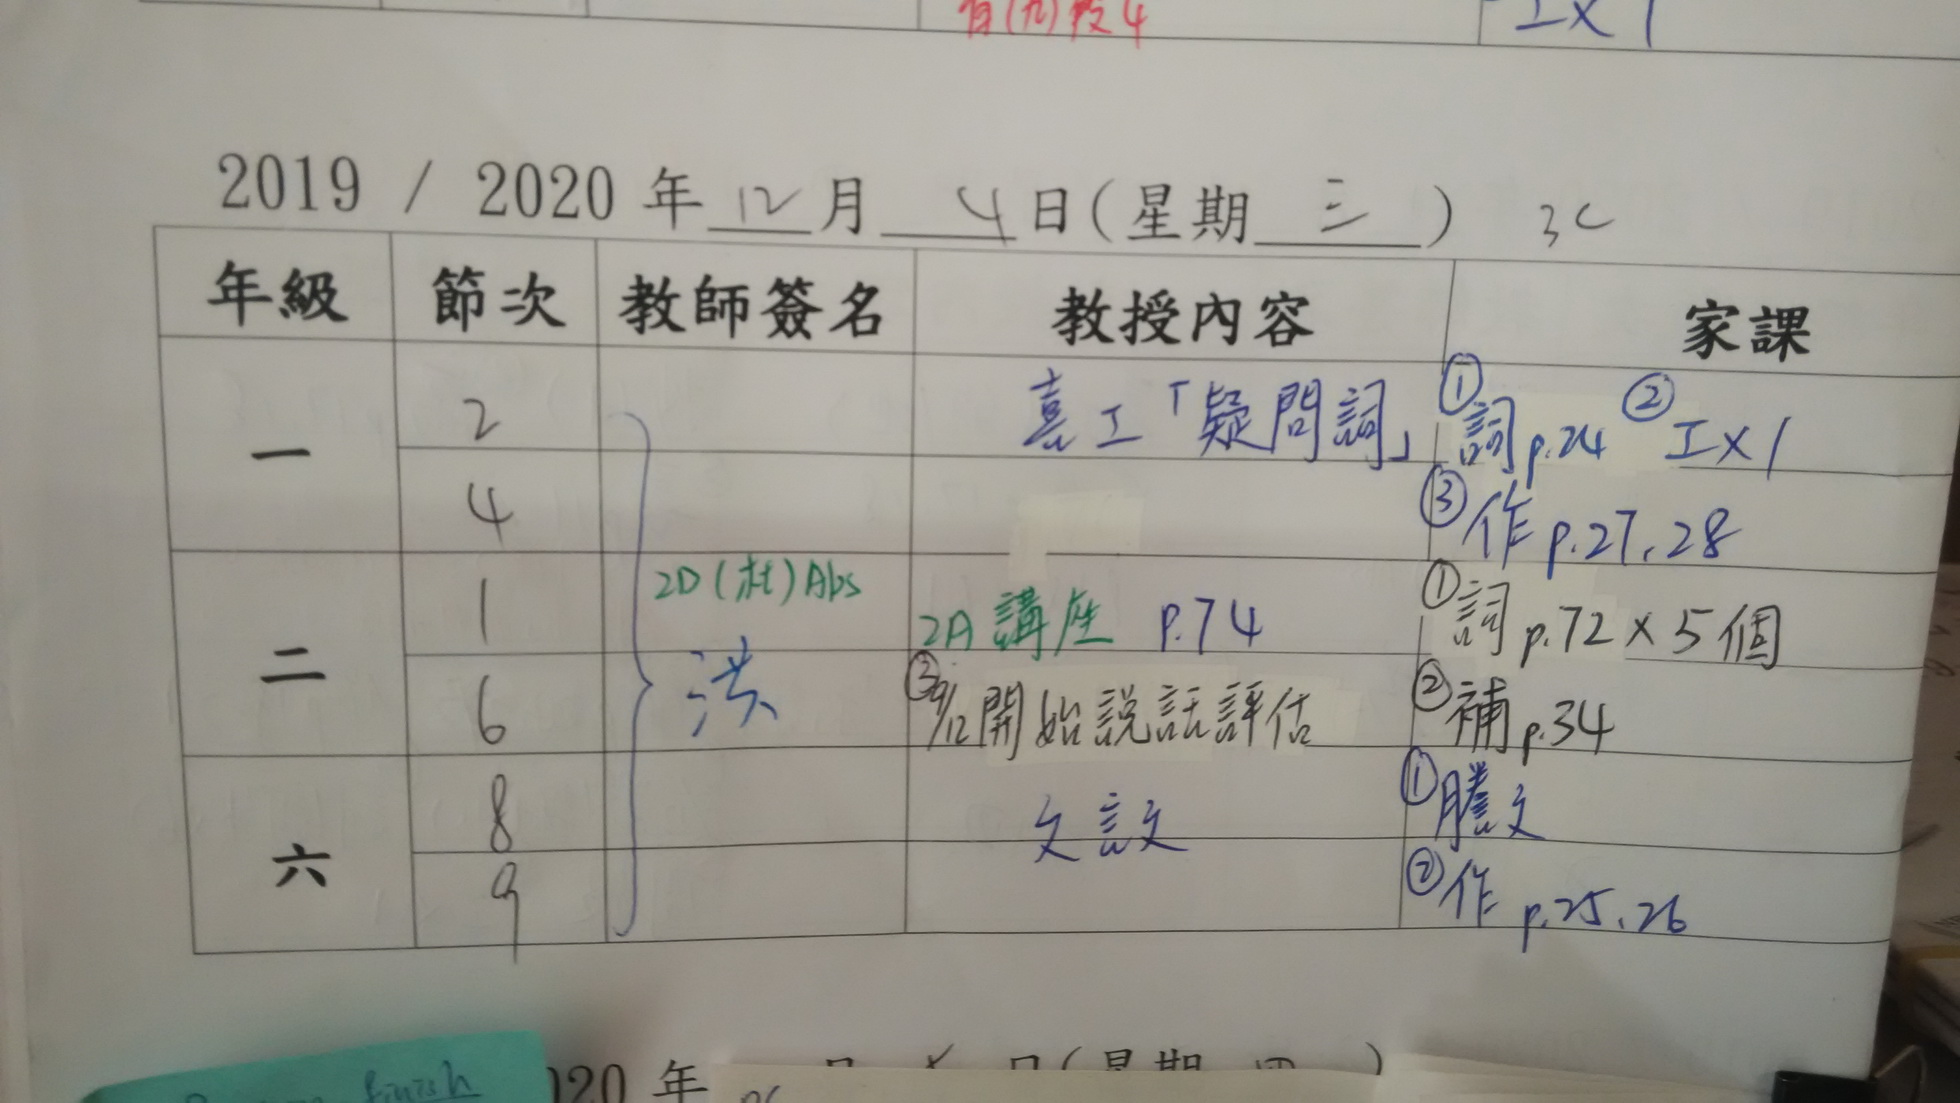 I×1
2019 / 2020 年 12 月 4 日(星期 三 ) 3C
年級 節次 教師簽名 教授內容 家課
一 2 工「疑問詞」 ①詞p.24 ②工×1
4 ③作p.27,28
二 1 2D(杜)Abs 2A講座 p.74 ①詞p.72×5個
6 洪 ③9/12開始説話評估 ②補p.34
六 8 ①謄文
9 ②作p.25,26
finish
020 年 月 日(星期 四 )